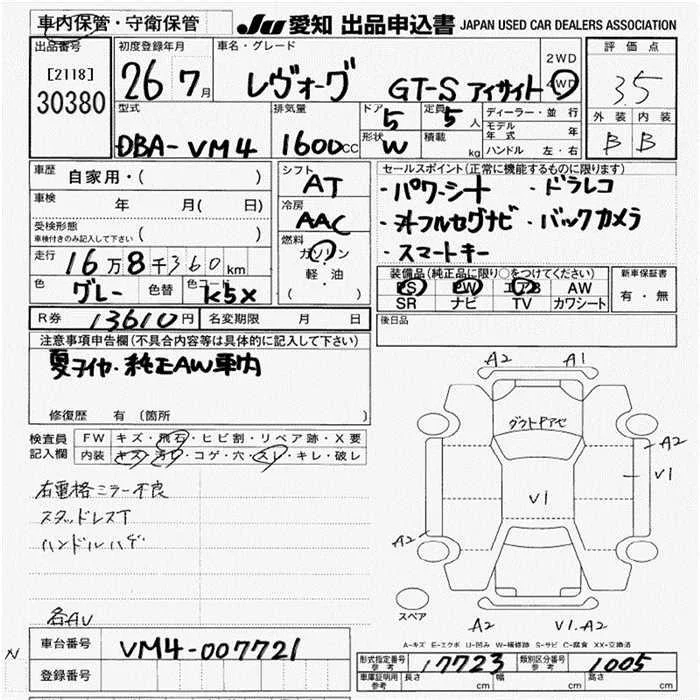 車内保管・守衛保管
JU 愛知 出品申込書 JAPAN USED CAR DEALERS ASSOCIATION
出品番号
[2118]
30380
初度登録年月
26 7月
車名・グレード
レヴォーグ GT-S アイサイト
2WD
4WD
評価点
3.5
外装 内装
B B
型式
DBA-VM4
排気量
1600cc
ドア
5
定員
5人
形状
W
積載
kg
ディーラー・並行
モデル年式 年
ハンドル 左・右
車歴 自家用・( )
車検 年 月( 日)
受検形態
車検付きのみ記入して下さい ( )
走行 16万8千360km
色 グレー 色替 色コード K5X
シフト
AT
冷房
AAC
燃料
ガソリン
軽・油
( )
セールスポイント(正常に機能するものに限ります)
・パワーシート ・ドラレコ
・フルセグナビ ・バックカメラ
・スマートキー
装備品(純正品に限り○をつけてください)
PS PW エアB AW
SR ナビ TV カワシート
新車保証書
有・無
R券 13610円 名変期限 月 日
後日品
注意事項申告欄(不具合内容等は具体的に記入して下さい)
夏タイヤ・純正AW車内
修復歴 有 (箇所 )
検査員記入欄
FW キズ・飛石・ヒビ割・リペア跡・X要
内装 キズ・汚れ・コゲ・穴・スレ・キレ・破レ
右電格ミラー不良
スタッドレスT
ハンドルハゲ
名AU
A2 A1
A2
V1
V1
A2
スペア
A2 V1.A2
A-キズ E-エクボ U-凹み W-補修跡 S-サビ C-腐食 XX-交換済
N
車台番号 VM4-007721
登録番号
形式指定番号 参考 17723 類別区分番号 参考 1005
車庫証明用 参考 長さ cm 幅 cm 高さ cm